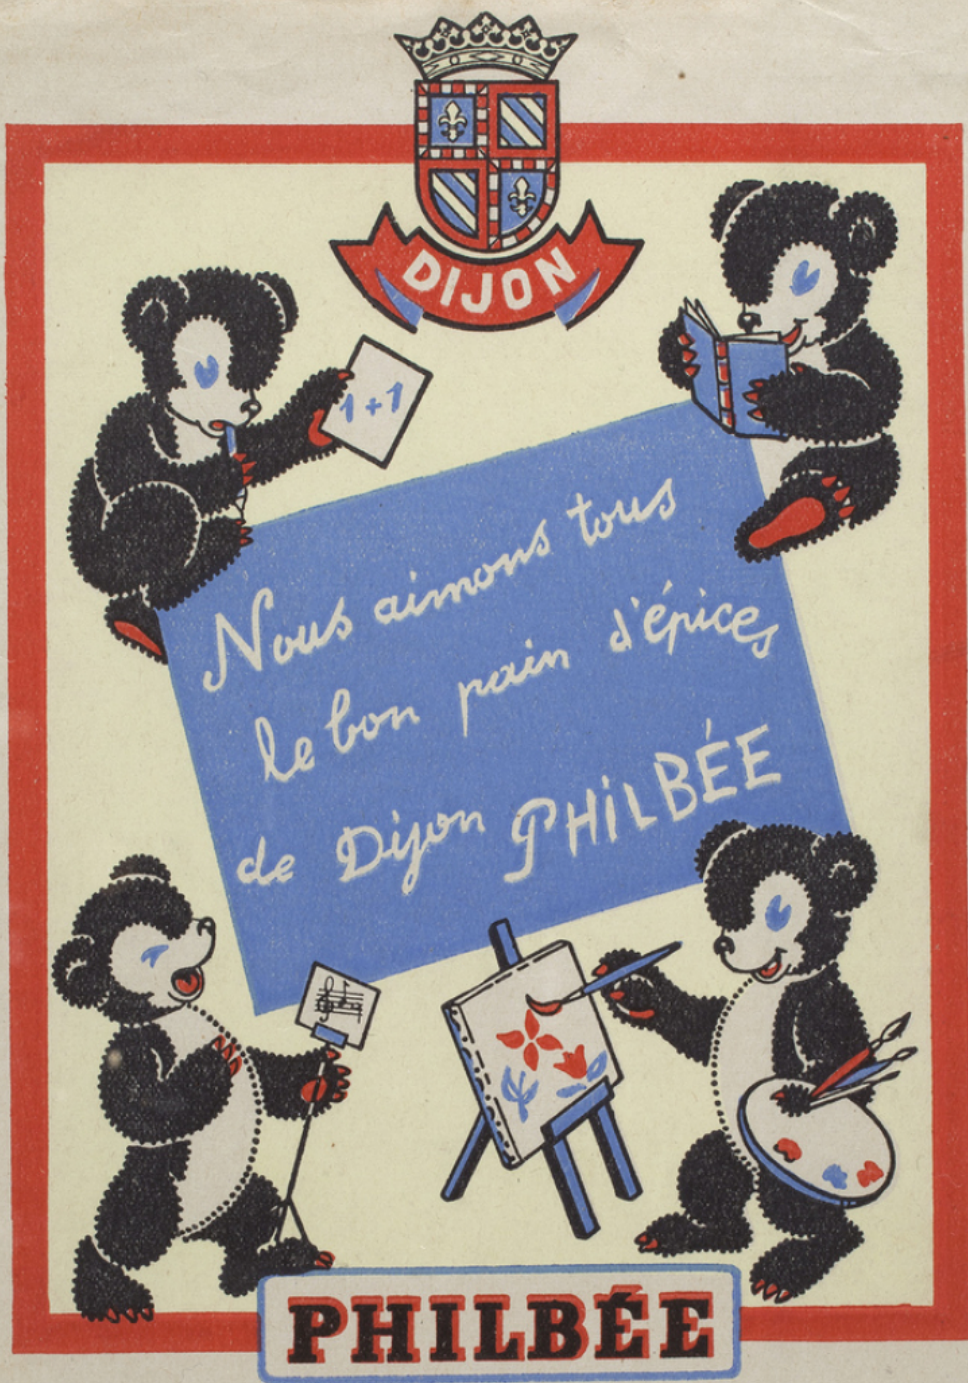 DIJON
1+1
Nous aimons tous
le bon pain d'épices
de Dijon PHILBÉE
PHILBÉE